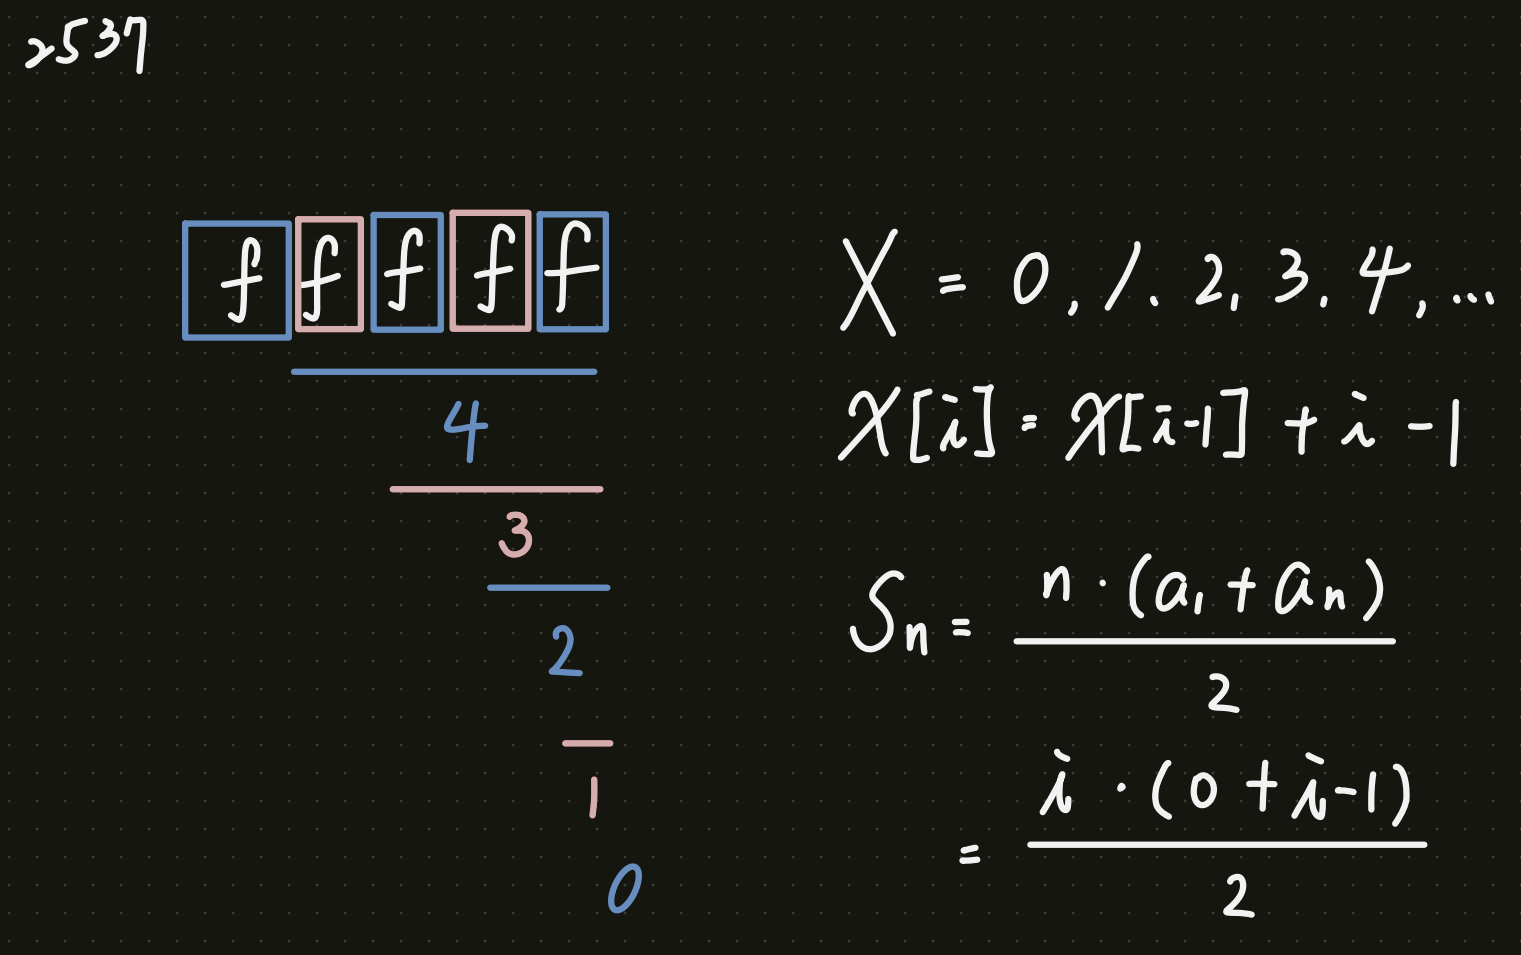 2537
f f f f f
4
3
2
1
0
X = 0, 1. 2, 3. 4, ...
x[i] = x[i-1] + i - 1
Sn = n · (a1 + an) / 2
= i · (0 + i-1) / 2